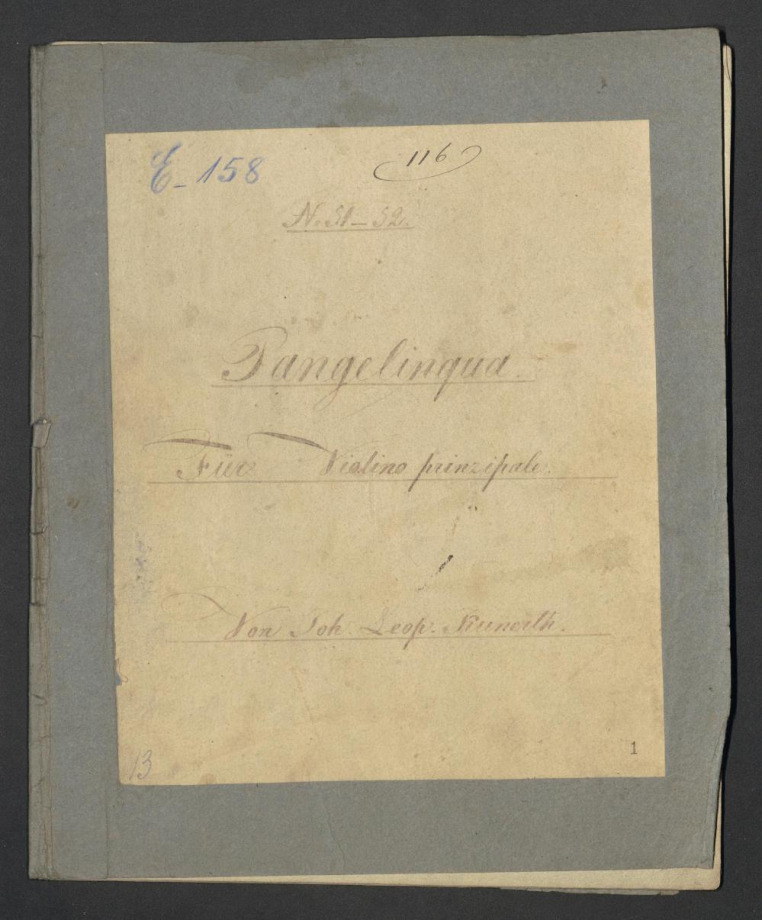 E-158
116
No. 51-52.
Pangelingua.
Für Violino prinzipale.
Von Joh. Leop. Kunerth.
13
1